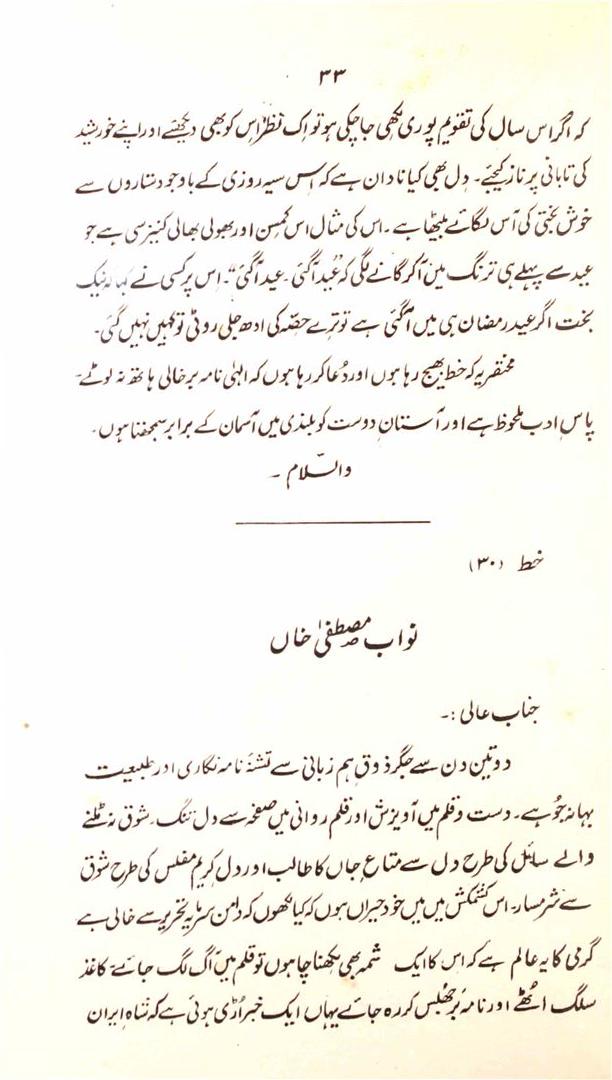 ۳۳
کہ اگر اس سال کی تقویم پوری لکھی جاچکی ہو تو اِک نظر اِس کو بھی دیکھیے اور اپنے خورشید
کی تابانی پر ناز کیجیے۔ دل بھی کیا نادان ہے کہ اس سیہ روزی کے باوجود ستاروں سے
خوش بختی کی آس لگائے بیٹھا ہے۔ اس کی مثال اس کمسن اور بھولی بھالی کنیز سی ہے جو
عید سے پہلے ہی ترنگ میں آکر گانے لگی کہ "عید آگئی۔ عید آگئی"۔ اِس پر کسی نے کہا کہ نیک
بخت اگر عید رمضان ہی میں آگئی ہے تو ترے حصّہ کی ادھ جلی روٹی تو کہیں نہیں گئی۔
مختصر یہ کہ خط بھیج رہا ہوں اور دُعا کر رہا ہوں کہ الہٰی نامہ بر خالی ہاتھ نہ لوٹے۔
پاسِ ادب ملحوظ ہے اور آستانِ دوست کو بلندی میں آسمان کے برابر سمجھتا ہوں۔
والسّلام ۔
خط (۳۰)
نواب مصطفیٰ خاں
جناب عالی :۔
دو تین دن سے جگر ذوقِ ہم زبانی سے تشنۂ نامہ نگاری اور طبیعت
بہانہ جُو ہے۔ دست و قلم میں آویزش اور قلم روانی میں صفحہ سے دل تنگ۔ شوق نہ ٹلنے
والے سائل کی طرح دل سے متاعِ جاں کا طالب اور دل کریم مفلس کی طرح شوق
سے شرمسار۔ اس کشمکش میں میں خود حیراں ہوں کہ کیا لکھوں کہ دامن سرمایۂ تحریر سے خالی ہے
گرمی کا یہ عالم ہے کہ اس کا ایک شمہ بھی لکھنا چاہوں تو قلم میں آگ لگ جائے کاغذ
سلگ اٹھے اور نامہ بر جھُلس کر رہ جائے یہاں ایک خبر اُڑی ہوئی ہے کہ شاہِ ایران